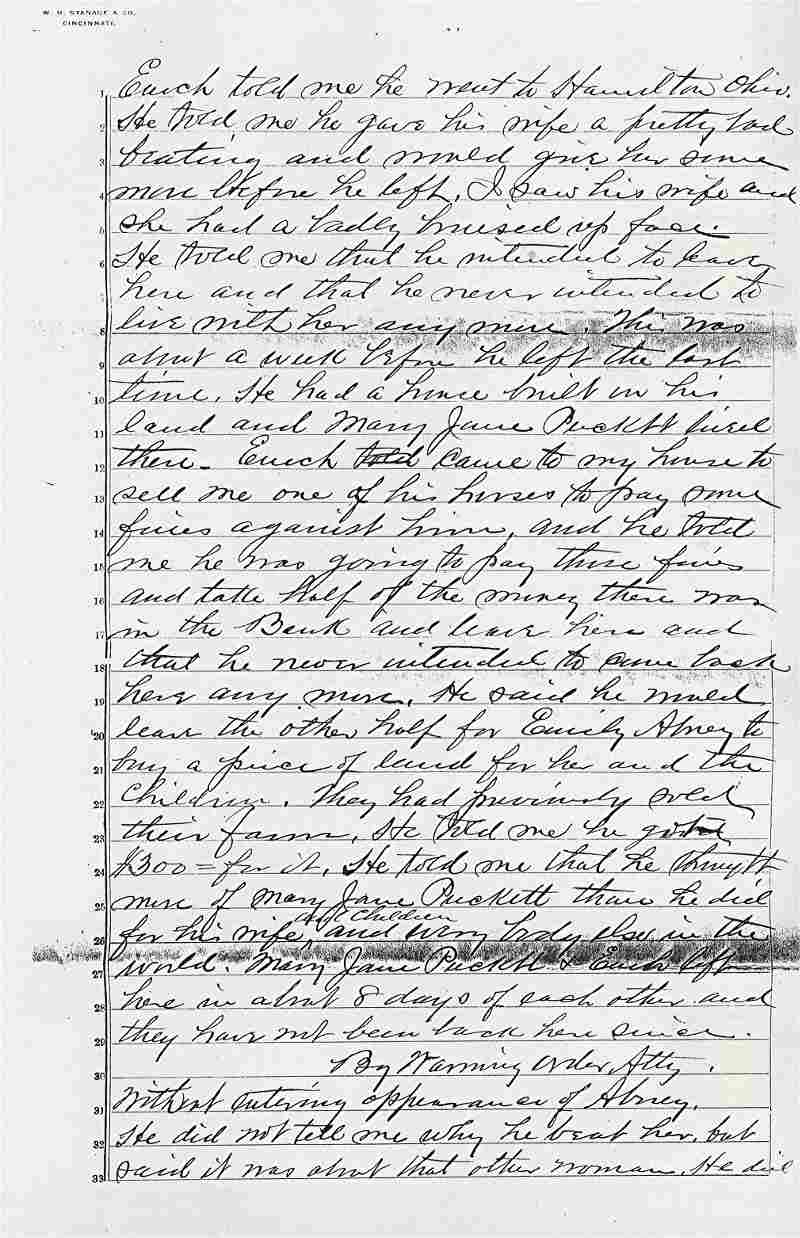 W. H. STANAGE & CO.
CINCINNATI.
1 Enich told me he went to Hamilton Ohio.
2 He told me he gave his wife a pretty bad
3 beating and would give her some
4 more before he left. I saw his wife and
5 she had a badly bruised up face.
6 He told me that he intended to leave
7 here and that he never intended to
8 live with her any more. This was
9 about a week before he left the last
10 time. He had a house built on his
11 land and Mary Jane Puckett lived
12 there. Enich told came to my house to
13 sell me one of his horses to pay some
14 fines against him, and he told
15 me he was going to pay those fines
16 and take half of the money there was
17 in the Bank and leave here and
18 that he never intended to come back
19 here any more. He said he would
20 leave the other half for Emily Abney to
21 buy a piece of land for her and the
22 children. They had previously sold
23 their farm. He told me he got
24 $300= for it. He told me that he thought
25 more of Mary Jane Puckett than he did
and children
26 for his wife, and every body else in the
27 world. Mary Jane Puckett & Enich left
28 here in about 8 days of each other and
29 they have not been back here since.
30 By Warning Order Atty.
31 Without entering appearance of Abney.
32 He did not tell me why he beat her, but
33 said it was about that other woman. He did